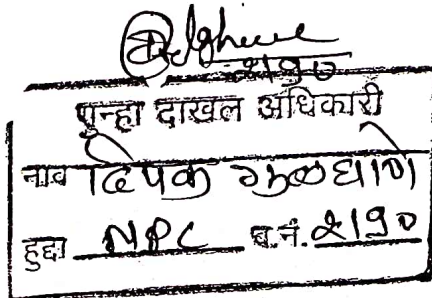 २१९०
गुन्हा दाखल अधिकारी
नाव दिपक गुळघाणे
हुद्दा NPC ब.नं. २१९०